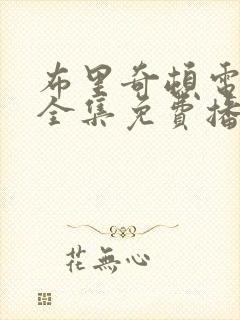 布里奇頓電
全集免費播
花無心